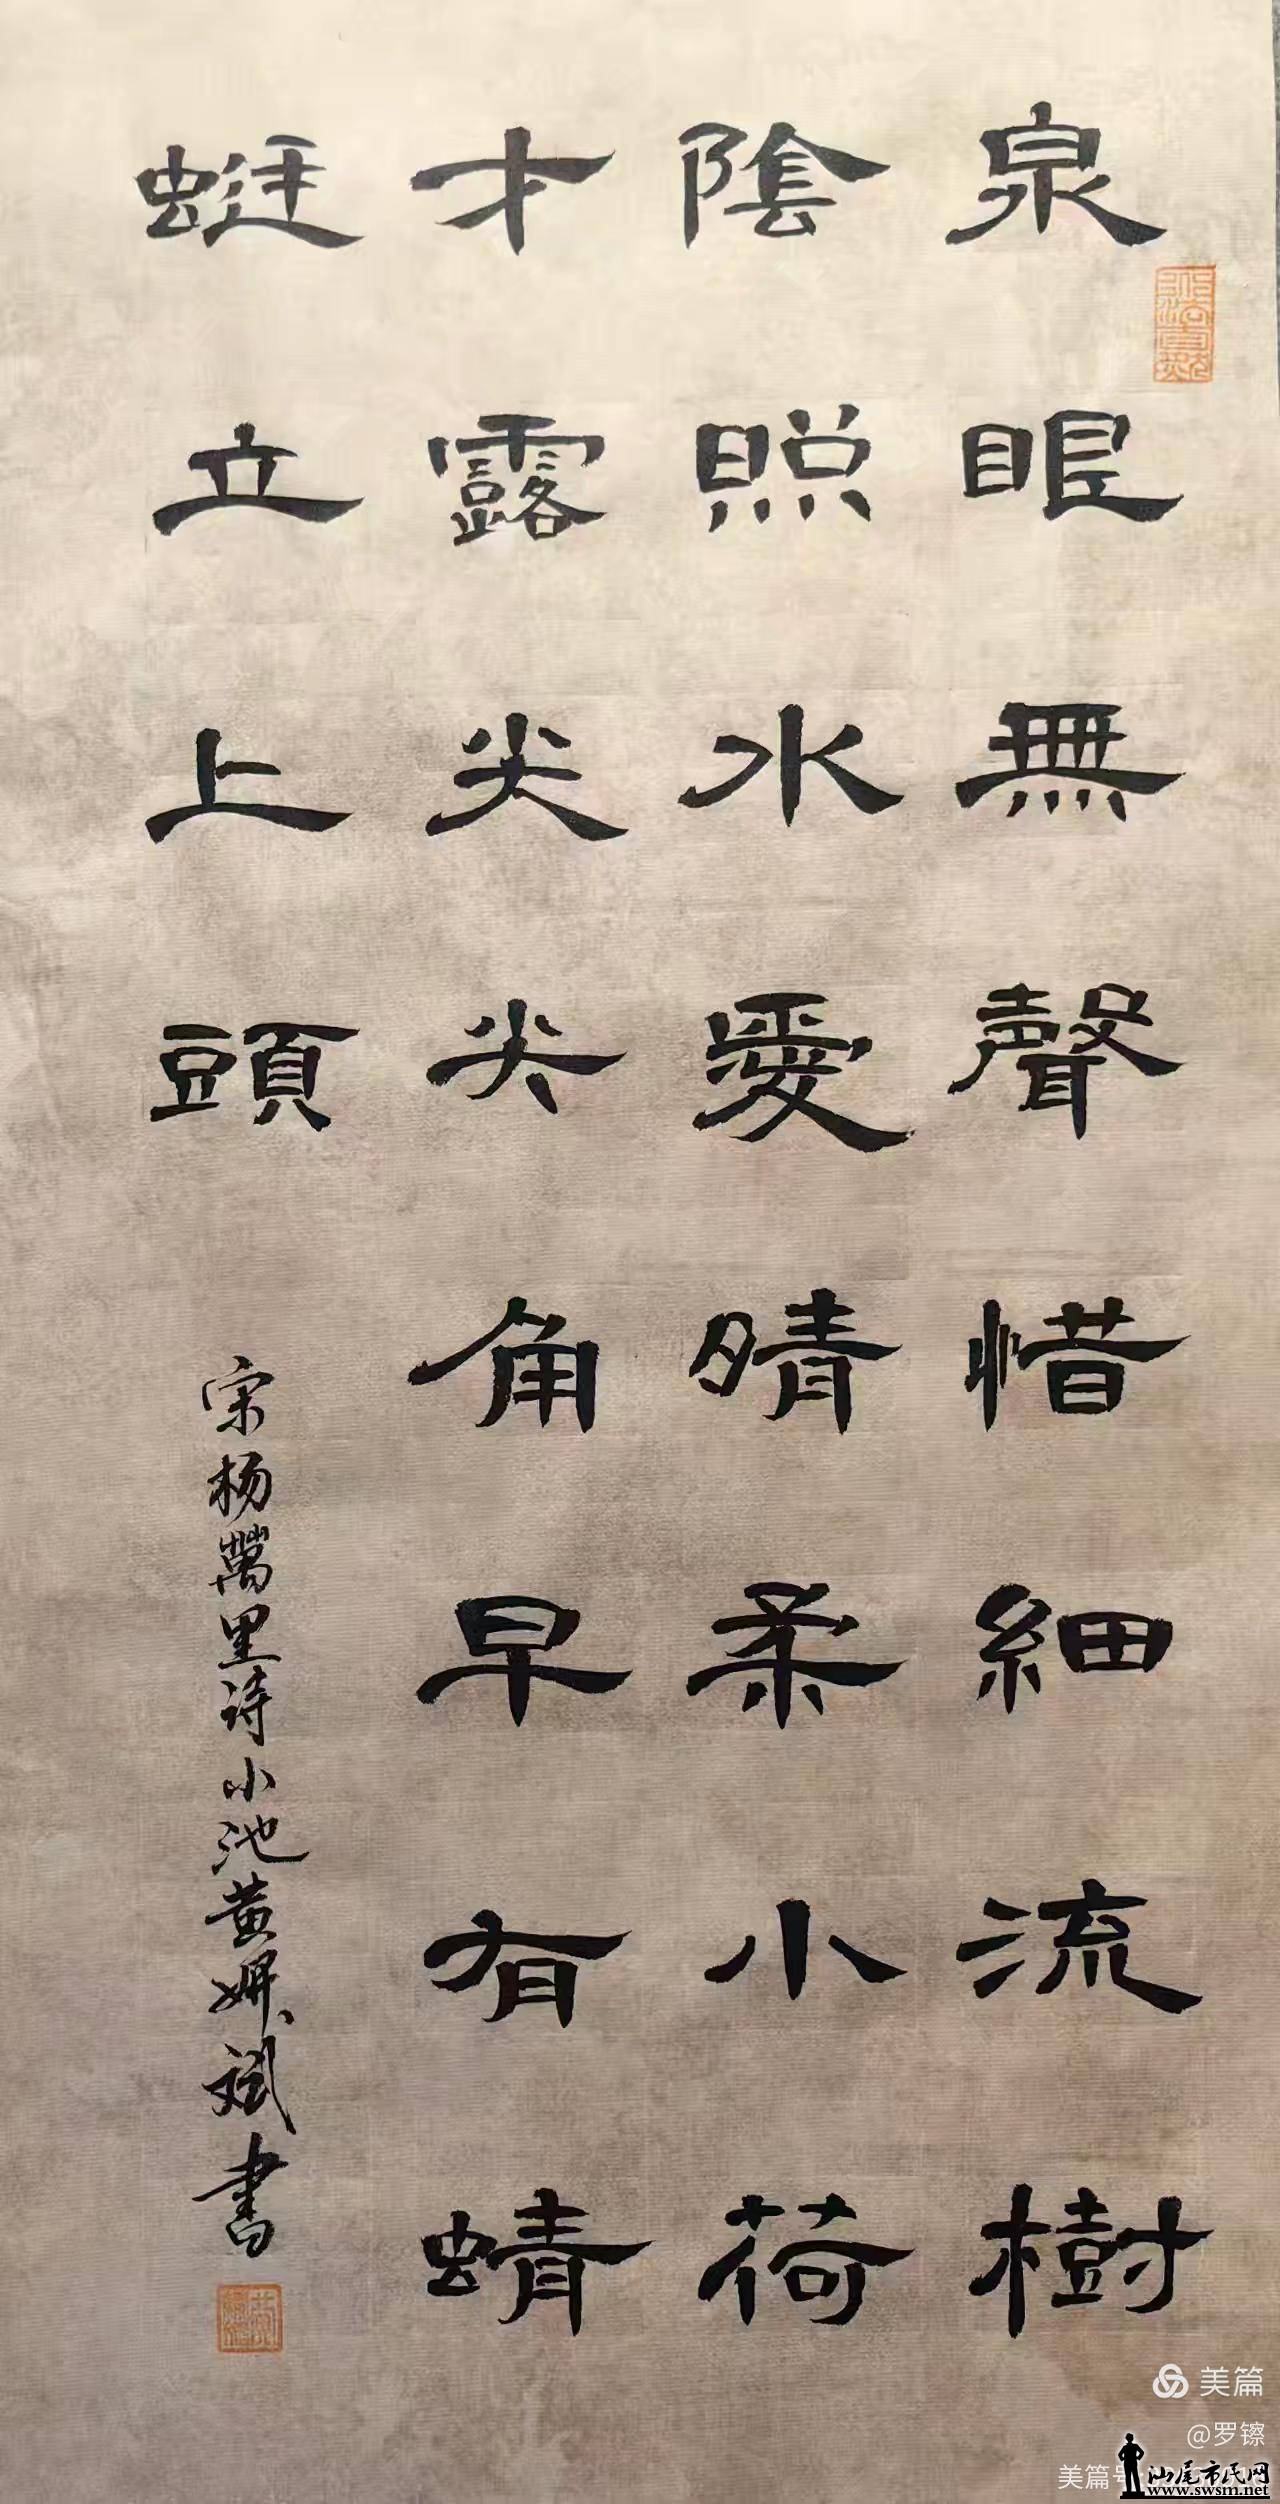 泉眼無聲惜細流樹
陰照水愛晴柔小荷
才露尖尖角早有蜻
蜓立上頭
宋杨萬里诗小池黄妍斌書
美篇
@罗镲
美篇号
汕尾市民网
www.swsm.net